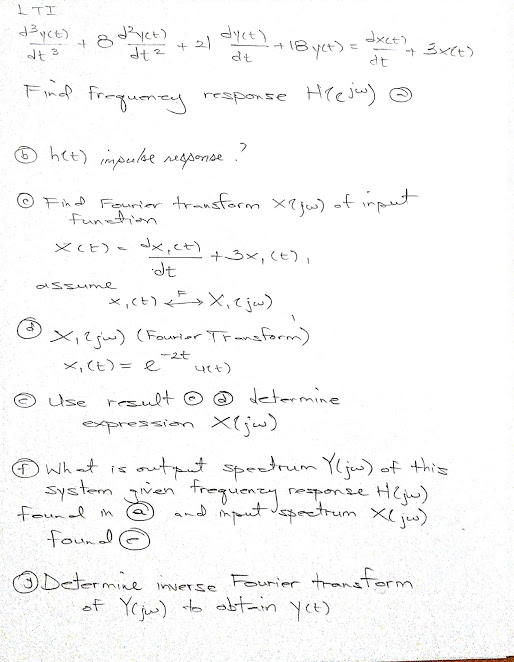 LTI
d³y(t)/dt³ + 8 d²y(t)/dt² + 21 dy(t)/dt + 18 y(t) = dx(t)/dt + 3x(t)
Find frequency response H(ejω) ⓐ
ⓑ h(t) impulse response?
ⓒ Find Fourier transform X(jω) of input
function
x(t) = dx₁(t)/dt + 3x₁(t),
assume
x₁(t) ⟷F X₁(jω)
ⓓ X₁(jω) (Fourier Transform)
x₁(t) = e^-2t u(t)
ⓔ Use result ⓒ ⓓ determine
expression X(jω)
ⓕ What is output spectrum Y(jω) of this
system given frequency response H(jω)
found in ⓐ and input spectrum X(jω)
found ⓔ
ⓖ Determine inverse Fourier transform
of Y(jω) to obtain y(t)